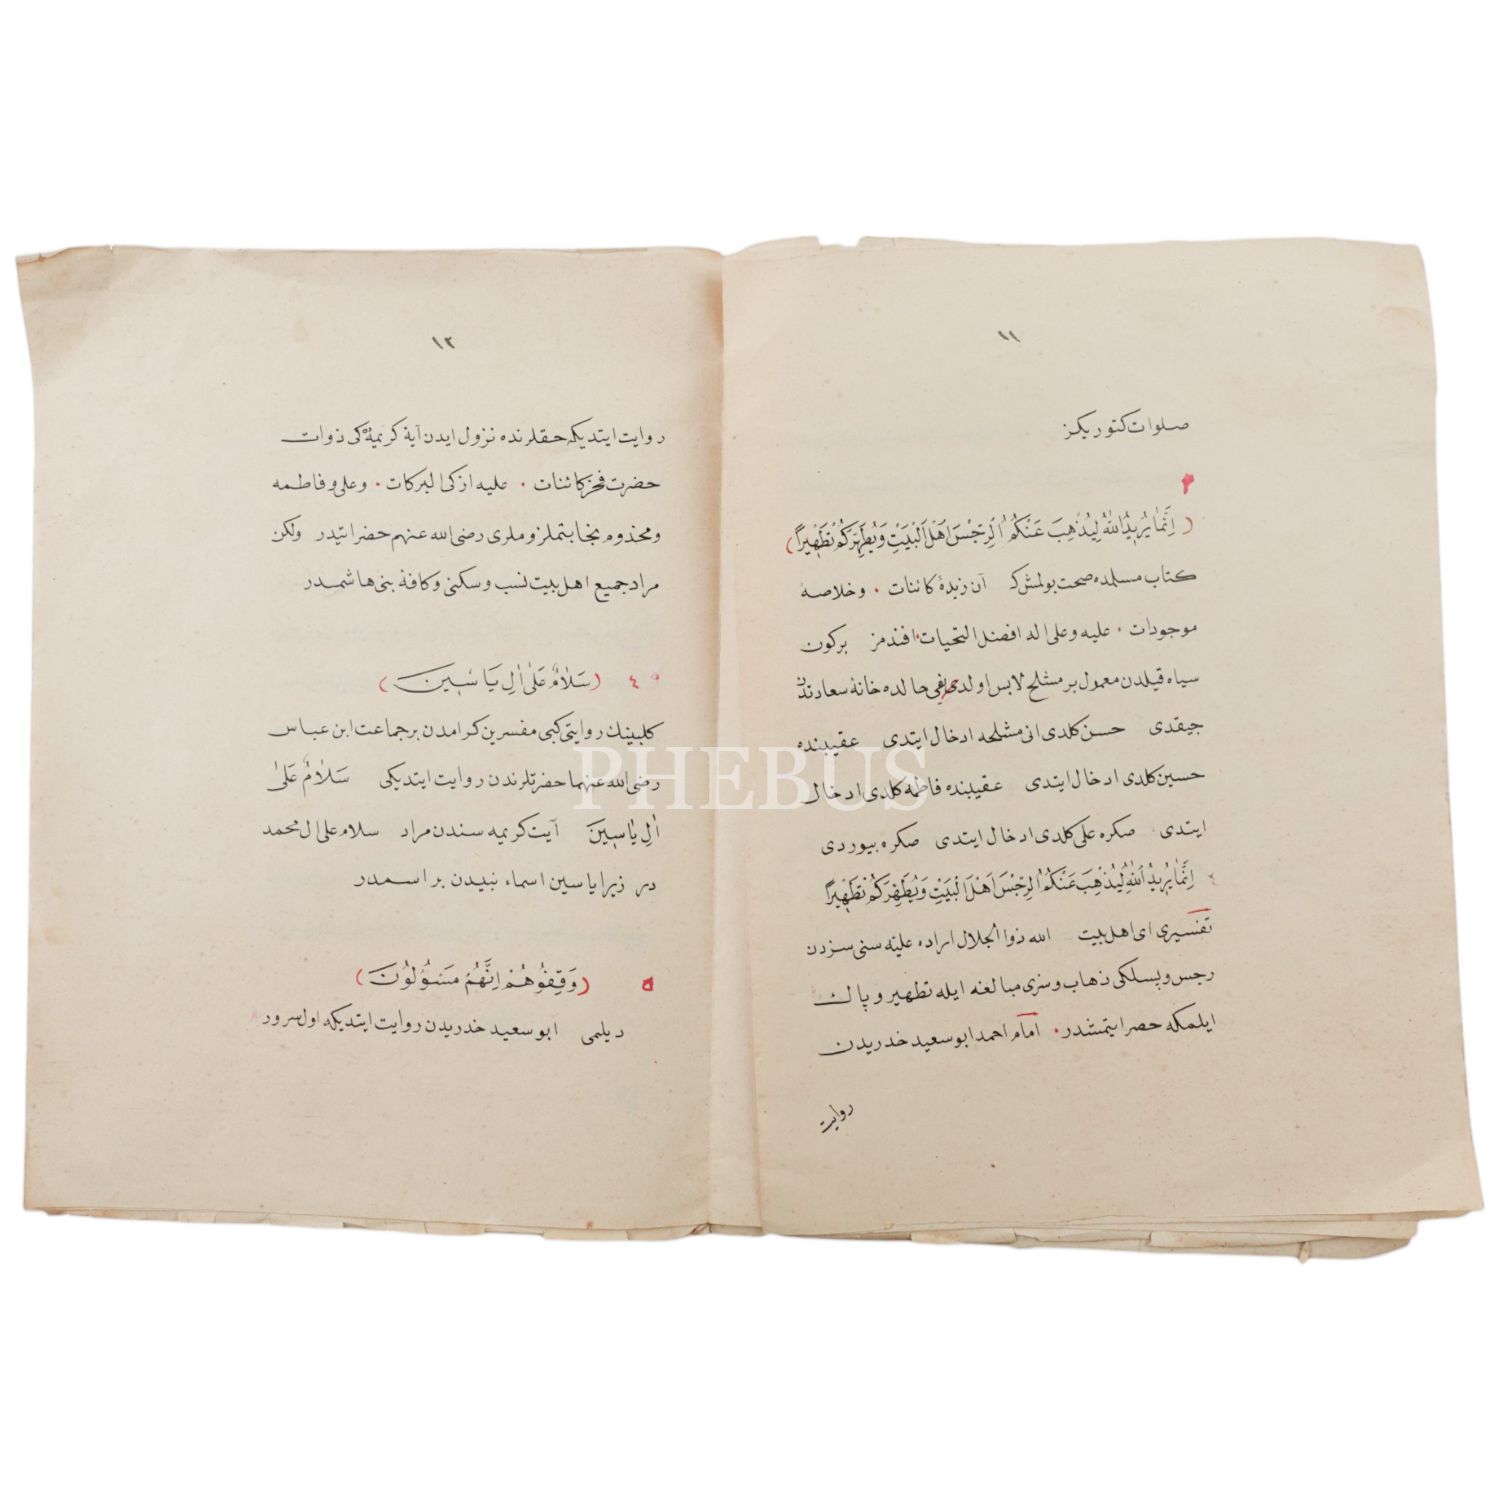 ١١
صلوات كتوريكز
٣
(اِنَّمَا يُرِيدُ اللّٰهُ لِيُذْهِبَ عَنْكُمُ الرِّجْسَ اَهْلَ الْبَيْتِ وَيُطَهِّرَكُمْ تَطْهِيرًا)
كتاب مسلمده صحت بولمش كه آن زبدهٔ كائنات ۰ وخلاصهٔ
موجودات ۰ عليه وعلى اله افضل التحيات ۰ افندمز بركون
سياه قيلدن معمول بر مشلح لابس اولديغى حالده خانهٔ سعادتدن
جيقدى حسن كلدى انى مشلحه ادخال ايتدى عقيبنده
حسين كلدى ادخال ايتدى عقيبنده فاطمه كلدى ادخال
ايتدى صكره على كلدى ادخال ايتدى صكره بيوردى
اِنَّمَا يُرِيدُ اللّٰهُ لِيُذْهِبَ عَنْكُمُ الرِّجْسَ اَهْلَ الْبَيْتِ وَيُطَهِّرَكُمْ تَطْهِيرًا
تفسيرى اى اهل بيت الله ذوالجلال اراده عليه سنى سزدن
رجس وپسلكى ذهاب وسزى مبالغه ايله تطهير و پاك
ايلمكه حصر ايتمشدر ۰ امام احمد ابو سعيد خدريدن
روايت
١٢
روايت ايتديكه حقلرنده نزول ايدن آية كريمه‌نك ذوات
حضرت فخر كائنات ۰ عليه ازكى البركات ۰ وعلى وفاطمه
ومخذوم نجابتملزوملرى رضى الله عنهم حضراتيدر ولكن
مراد جميع اهل بيت نسب وسكنى وكافهٔ بنى هاشمدر
٤ (سَلَامٌ عَلٰى اٰلِ يَاسِينَ)
كلبينك روايتى كبى مفسرين كرامدن بر جماعت ابن عباس
رضى الله عنهما حضرتلرندن روايت ايتديكى سَلَامٌ عَلٰى
اٰلِ يَاسِينَ آيت كريمه سندن مراد سلام على ال محمد
در زيرا ياسين اسماء نبيدن بر اسمدر
٥ (وَقِفُوهُمْ اِنَّهُمْ مَسْؤُلُونَ)
ديلمى ابو سعيد خدريدن روايت ايتديكه اول سرور
PHEBUS